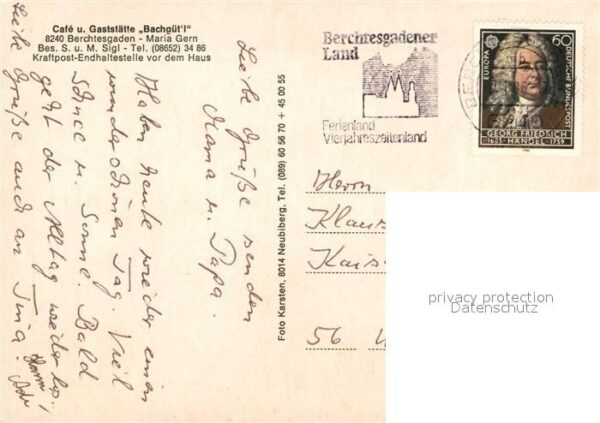 Café u. Gaststätte „Bachgüt'l"
8240 Berchtesgaden - Maria Gern
Bes. S. u. M. Sigl - Tel. (08652) 34 86
Kraftpost-Endhaltestelle vor dem Haus
Liebe Grüße senden
Mama u. Papa.
Haben heute wieder einen
wunderschönen Tag. Viel
Schnee u. Sonne. Bald
geht der Alltag wieder los!
Liebe Grüße auch an Tina!
Foto Karsten, 8014 Neubiberg, Tel. (089) 60 56 70 + 45 00 55
Berchtesgadener
Land
Ferienland
Vierjahreszeitenland
EUROPA
60
DEUTSCHE BUNDESPOST
GEORG FRIEDRICH
1685 HÄNDEL 1759
Herrn
Klaus
Kais
56
privacy protection
Datenschutz